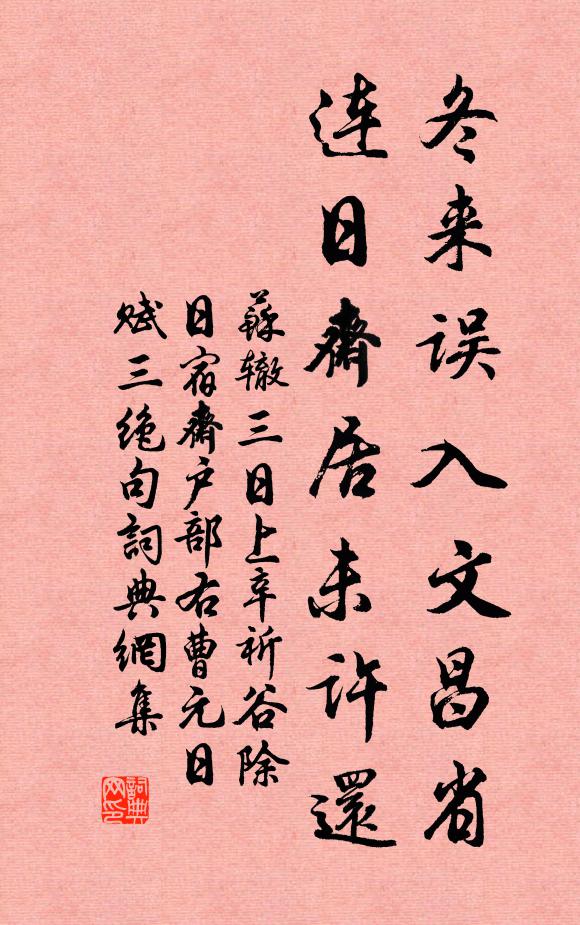 冬来误入文昌省
连日齋居未许還
蘇辙三日上辛祈谷除
日宿齋户部右曹元日
赋三绝句詞典網集
詞典网印